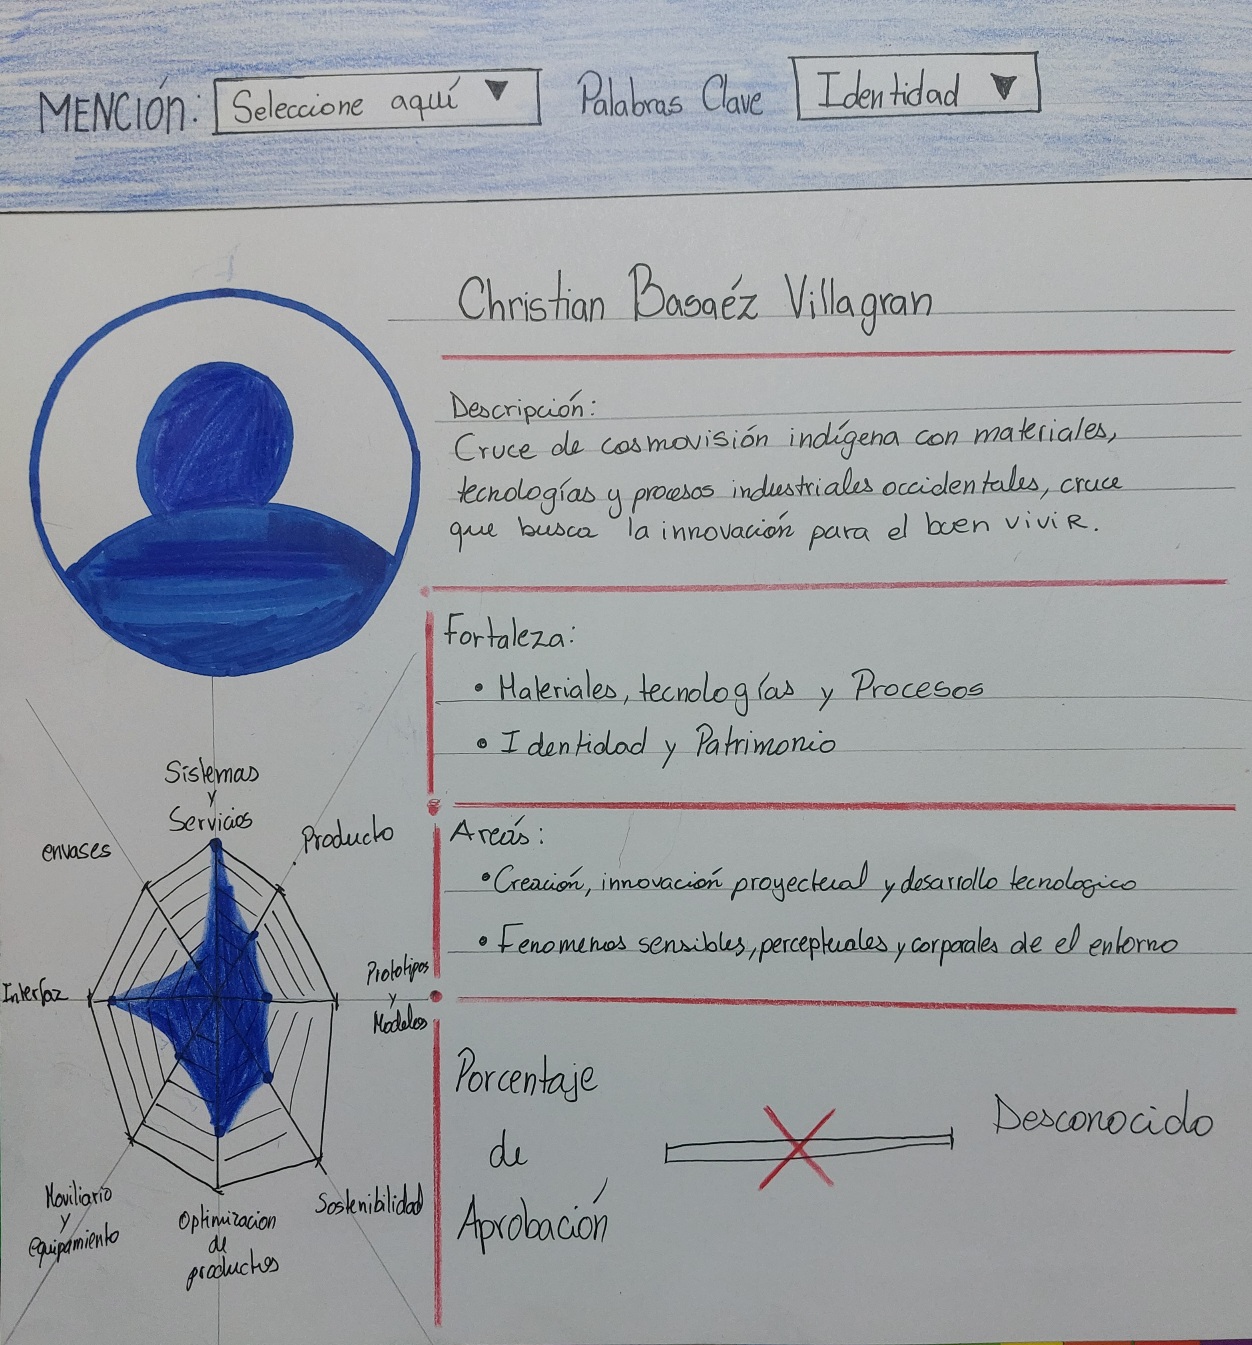 MENCIÓN: Seleccione aquí ▼ Palabras Clave Identidad ▼
Christian Basaéz Villagran
Descripción:
Cruce de cosmovisión indígena con materiales,
tecnologías y procesos industriales occidentales, cruce
que busca la innovación para el buen vivir.
Fortaleza:
• Materiales, tecnologías y Procesos
• Identidad y Patrimonio
Areás:
• Creación, innovación proyectual y desarrollo tecnologico
• Fenomenos sensibles, perceptuales y corporales de el entorno
Porcentaje
de
Aprobación
Desconocido
Sistemas
y
Servicios
Producto
envases
Prototipos
y
Modelos
Interfaz
Moviliario
y
equipamiento
Optimizacion
de
productos
Sostenibilidad